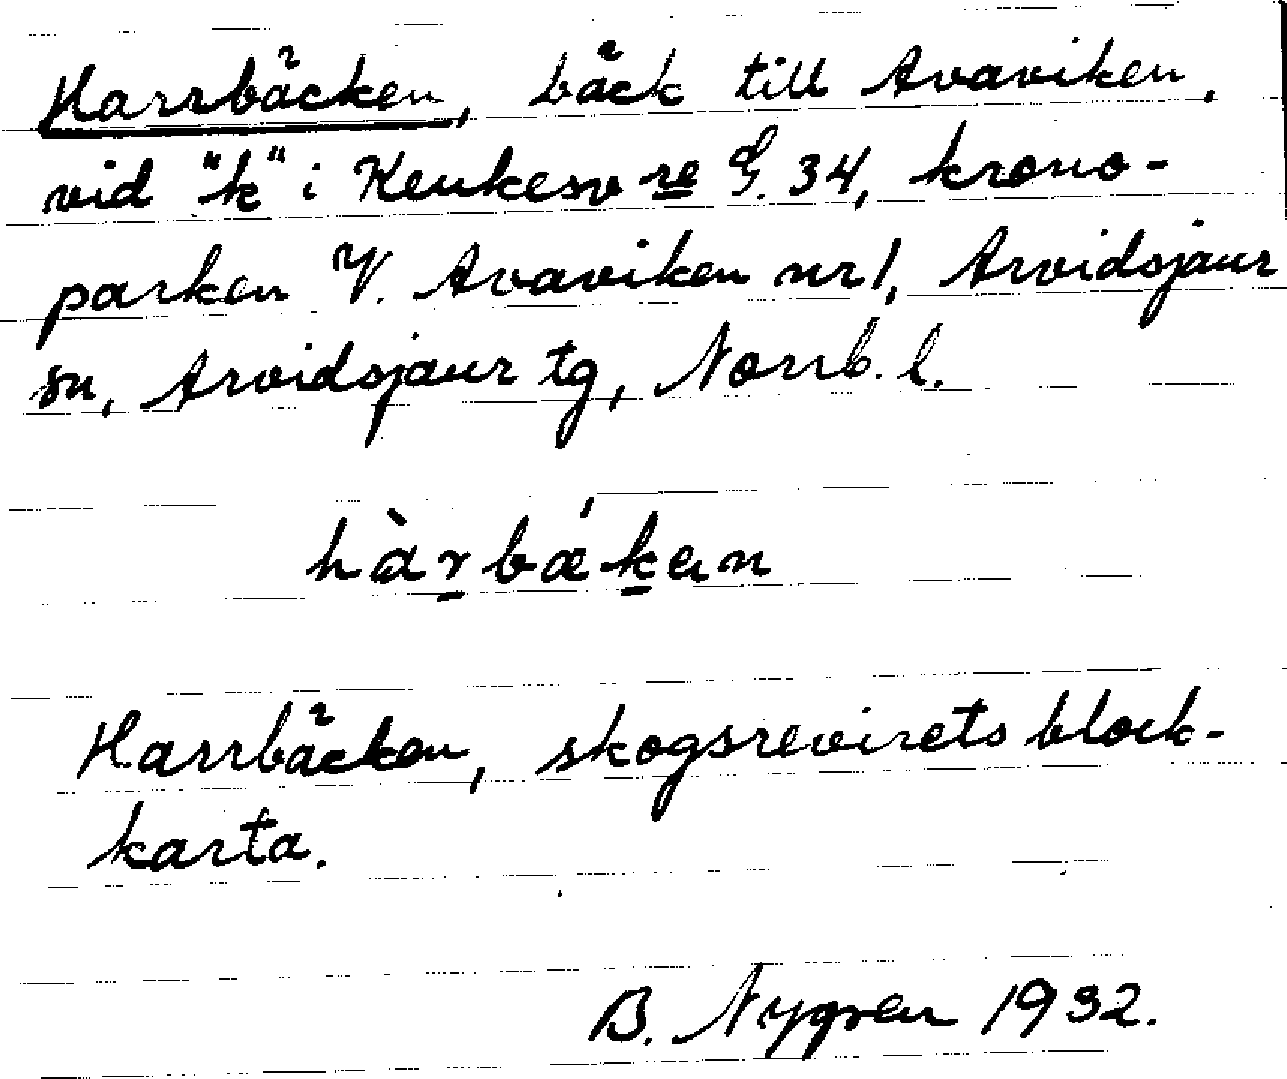 Harrbäcken, bäck till Avaviken,
vid "k" i Keukesv re G. 34, krono-
parken V. Avaviken nr 1, Arvidsjaur
sn, Arvidsjaur tg, Norrb. l.
hàrbǽken
Harrbäcken, skogsrevirets block-
karta.
B. Nygren 1932.